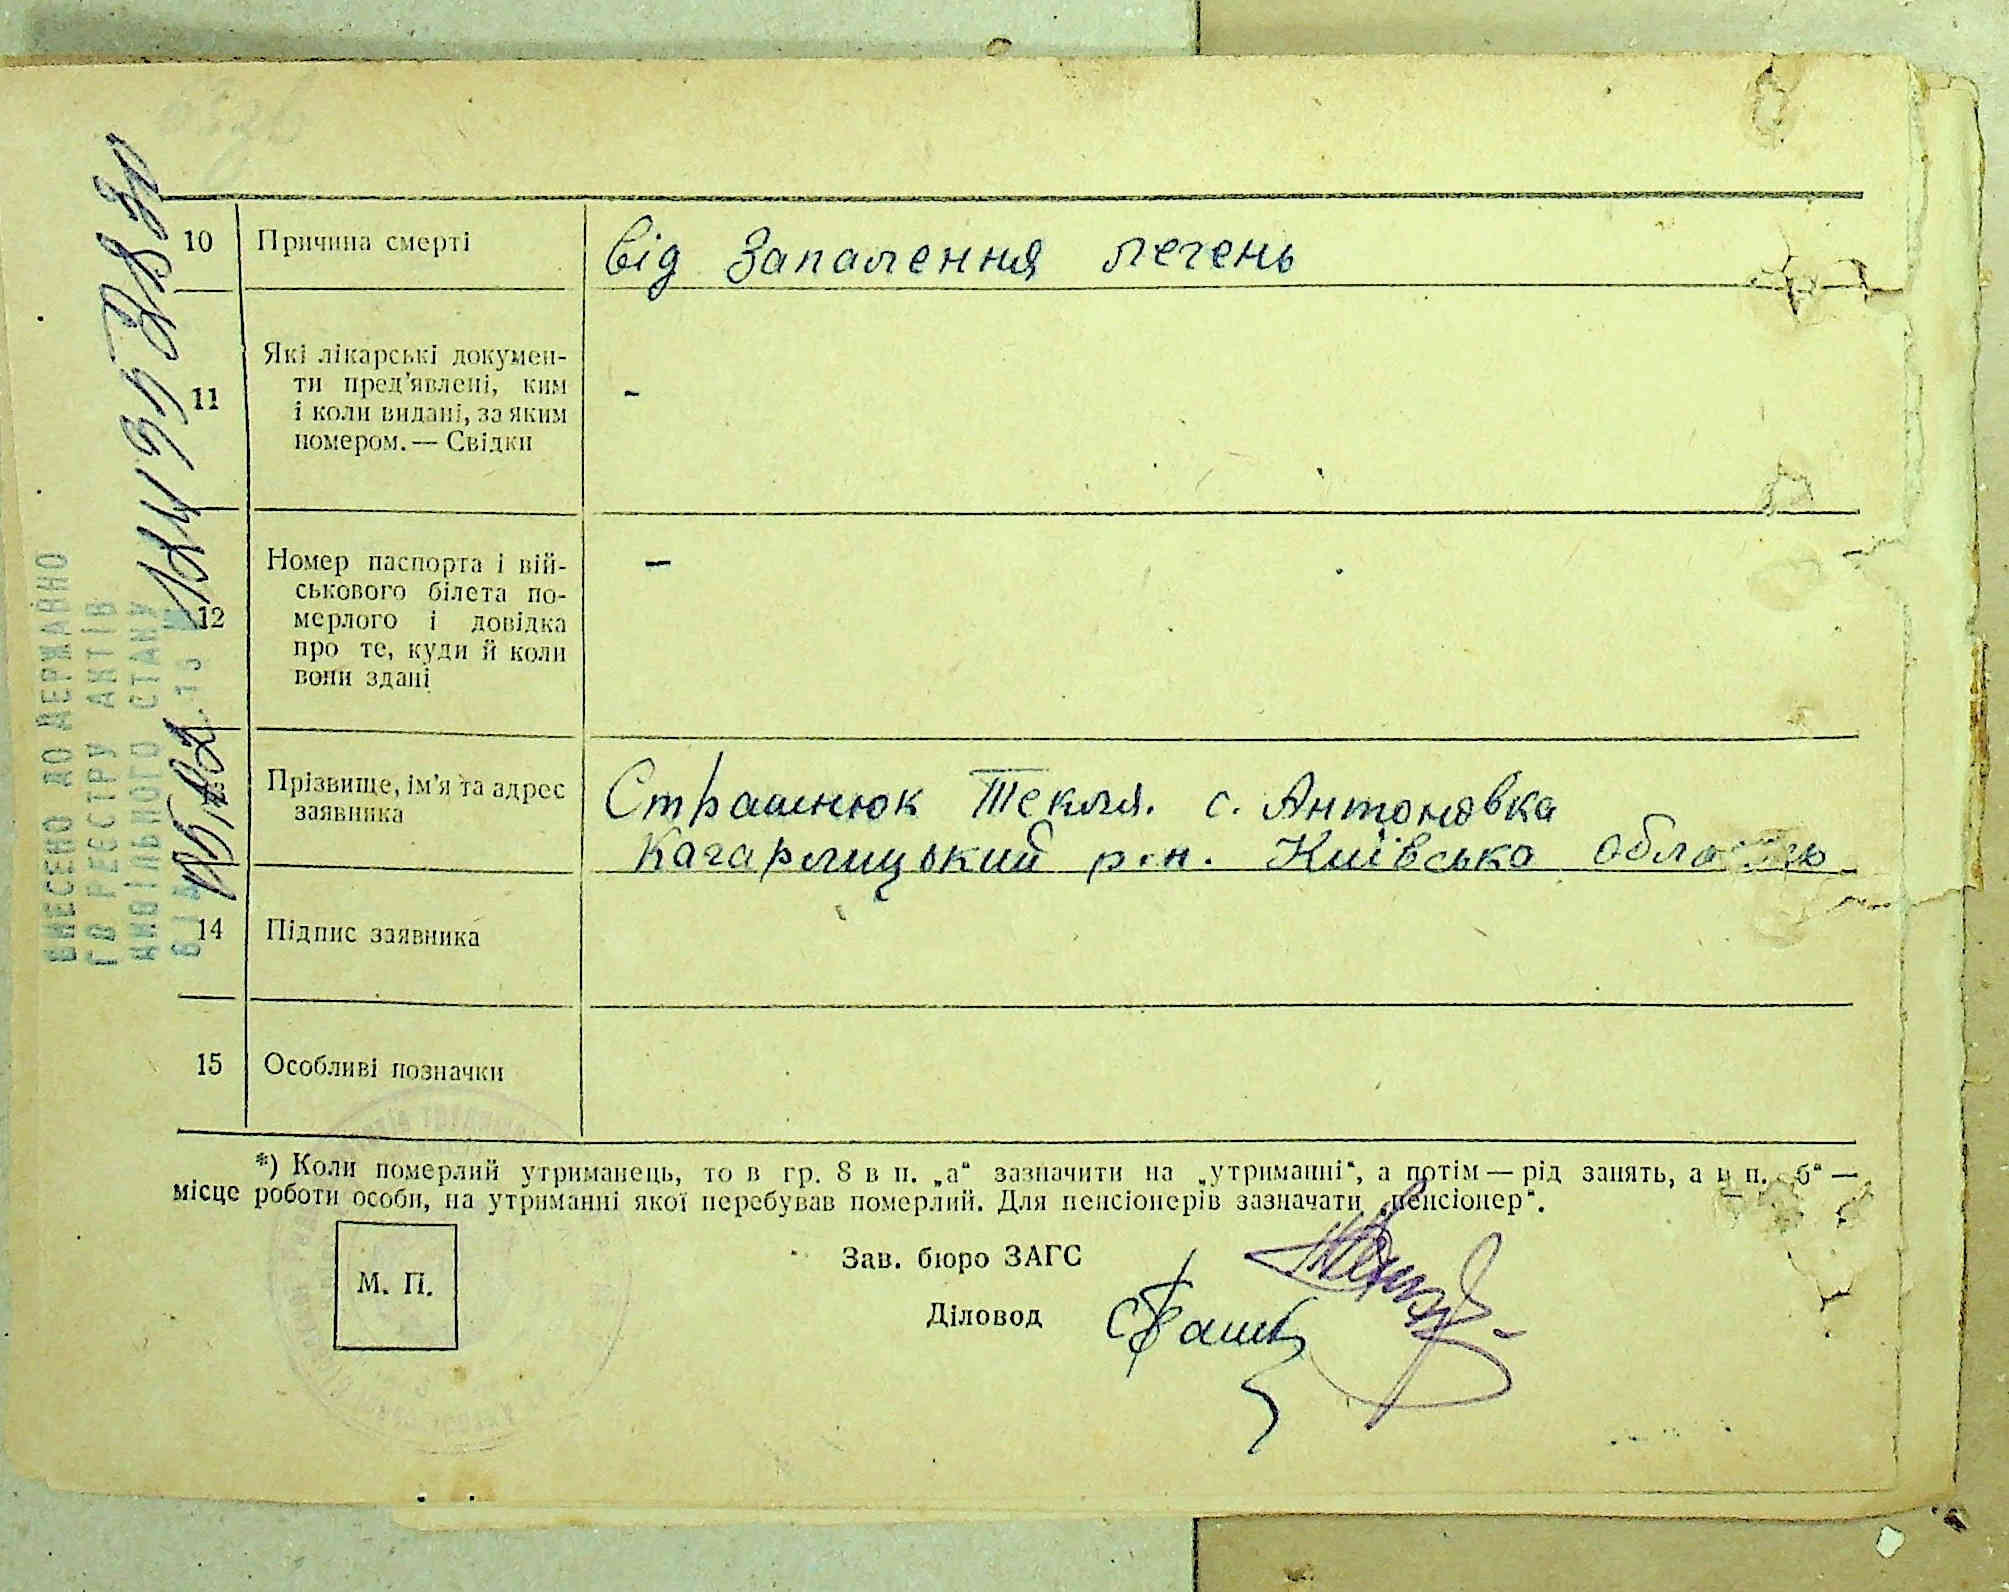 10 Причина смерті від Запалення легень
11 Які лікарські докумен-
ти пред'явлені, ким
і коли видані, за яким
номером. — Свідки
-
12 Номер паспорта і вій-
ськового білета по-
мерлого і довідка
про те, куди й коли
вони здані
-
Прізвище, ім'я та адрес
заявника
Страшнюк Текля. с. Антоновка
Кагарлицький р-н. Київська область
14 Підпис заявника
15 Особливі позначки
*) Коли померлий утриманець, то в гр. 8 в п. „а“ зазначити на „утриманні“, а потім — рід занять, а в п. „б“ —
місце роботи особи, на утриманні якої перебував померлий. Для пенсіонерів зазначати „пенсіонер“.
М. П.
Зав. бюро ЗАГС
Діловод
ВНЕСЕНО ДО ДЕРЖАВНО
ГО РЕЄСТРУ АКТІВ
ЦИВІЛЬНОГО СТАНУ